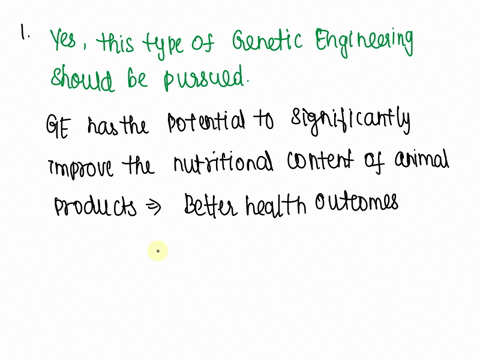 1. Yes, this type of Genetic Engineering
should be pursued.
GE has the potential to significantly
improve the nutritional content of animal
products ⇒ Better health outcomes